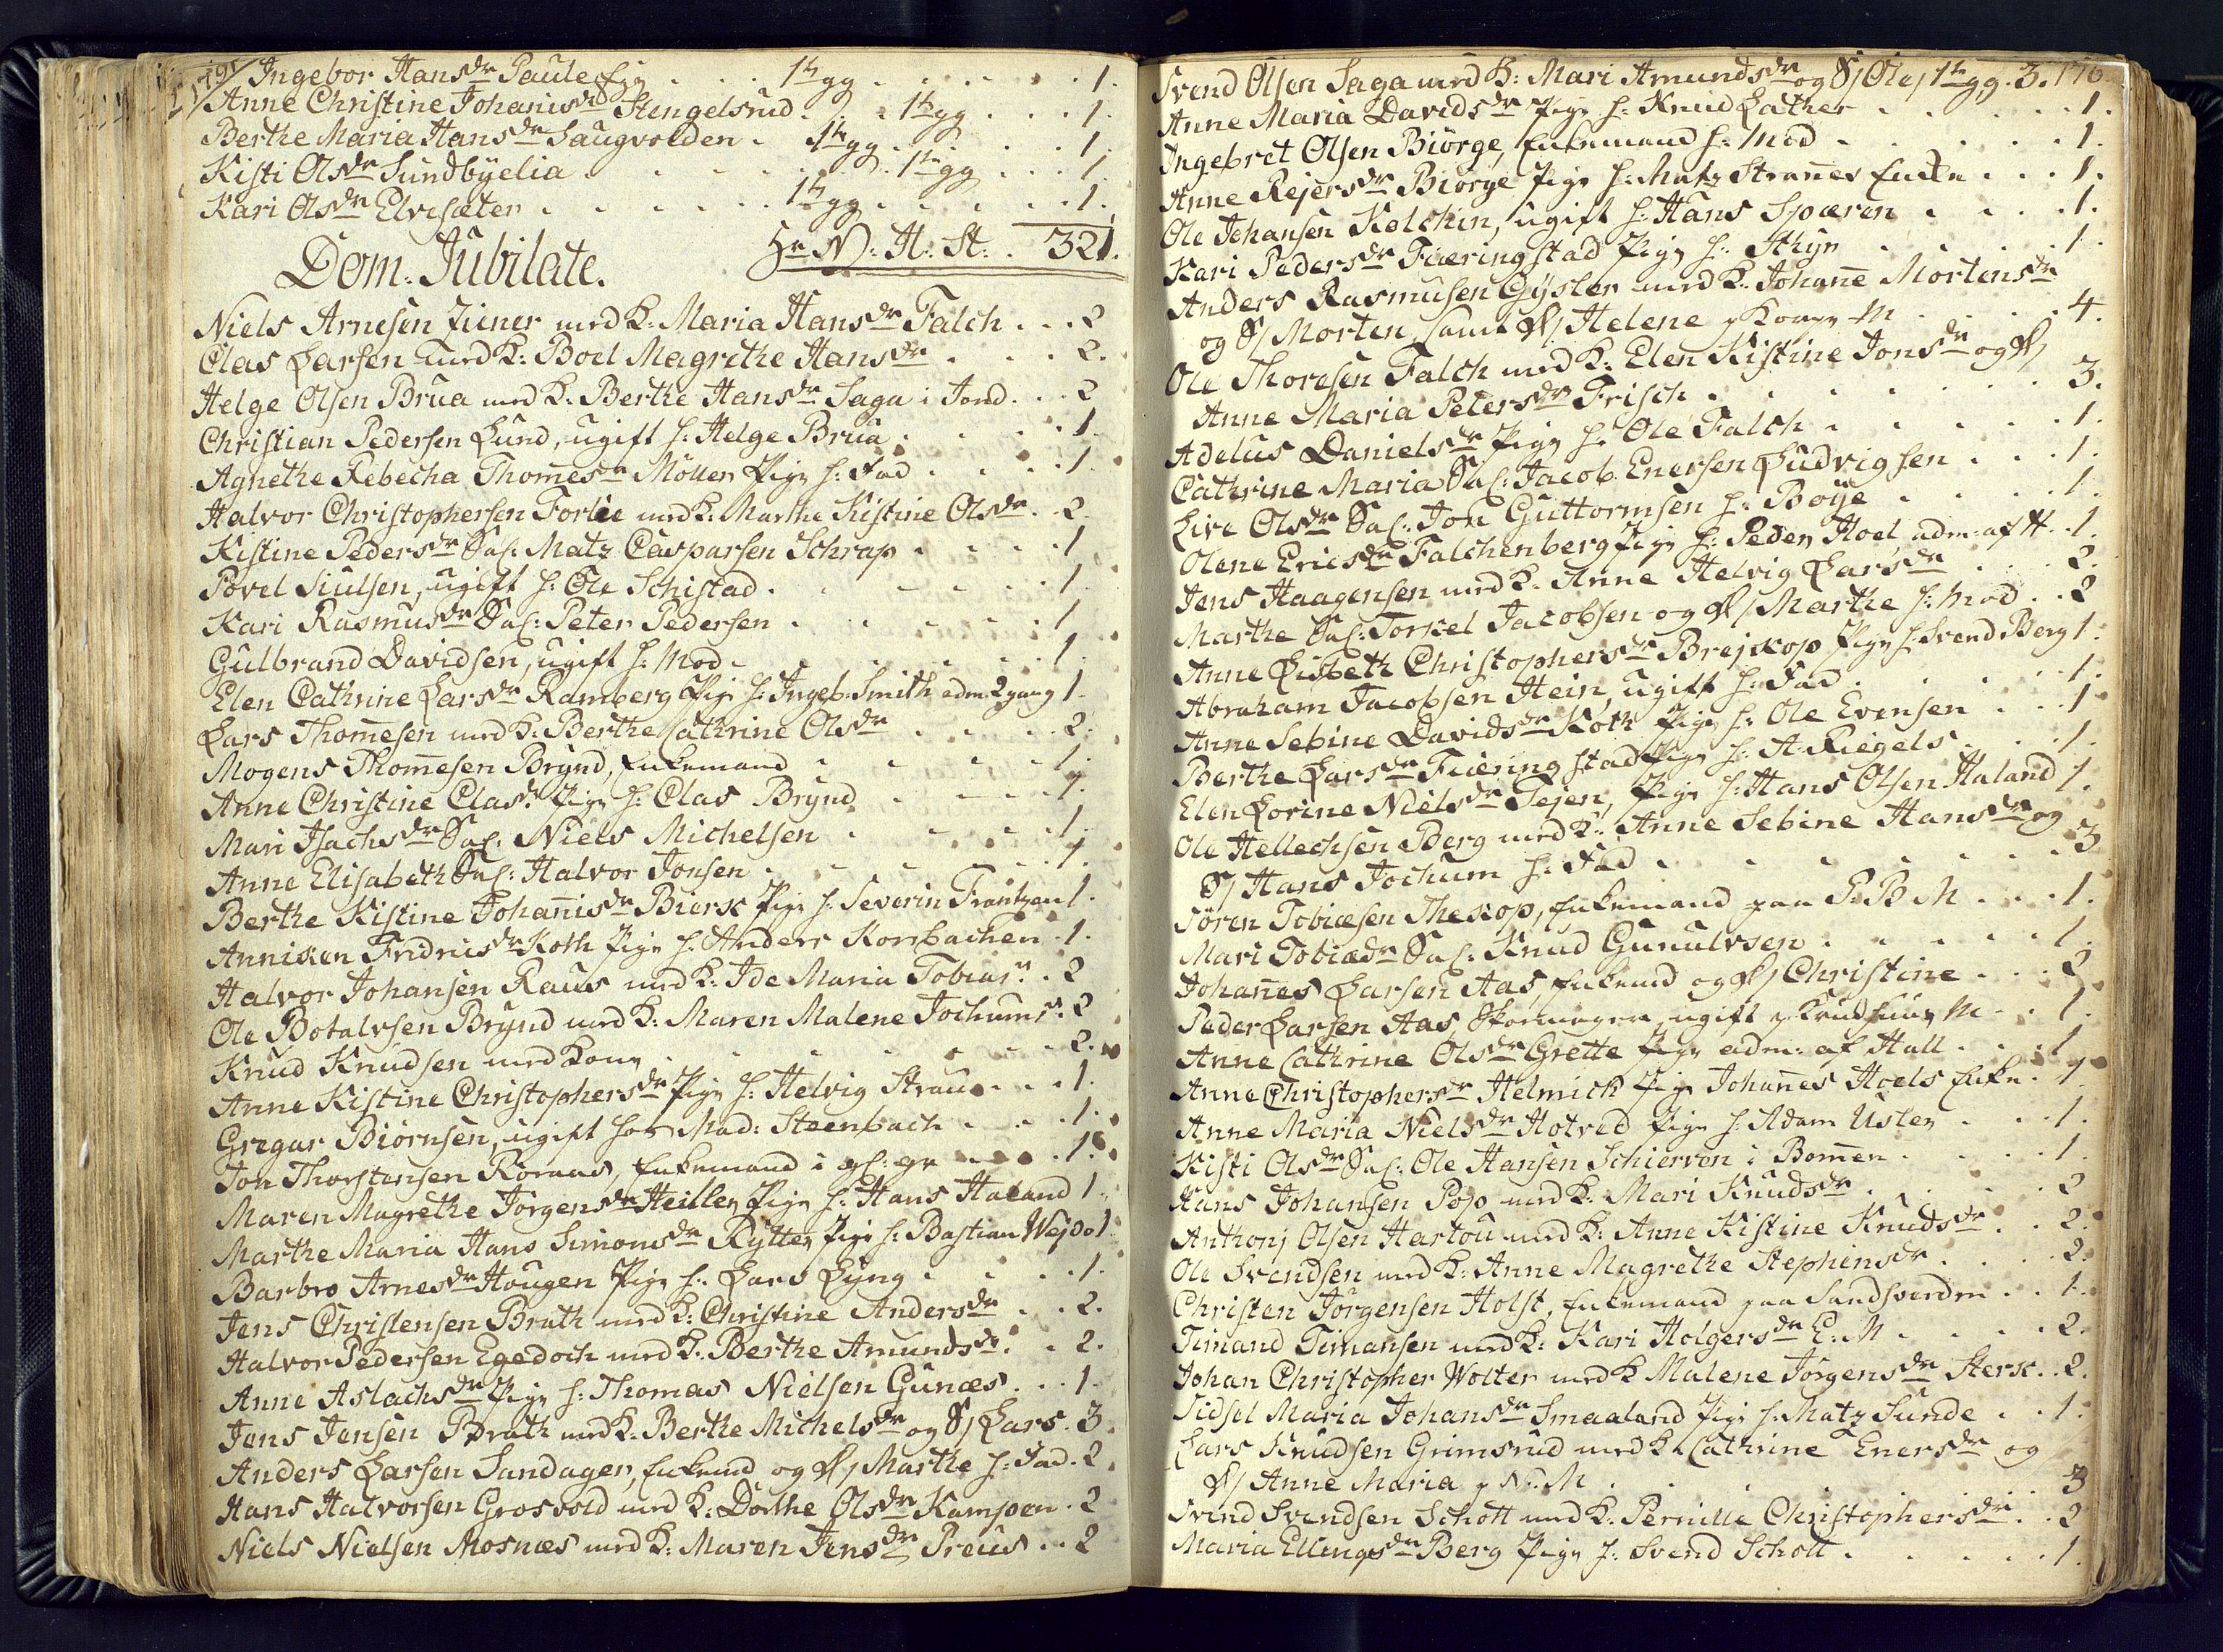 Ingebor Hansdr Paule Pige . . . 1te gg . . . . . 1.
Anne Christine Johanisdr Stengelsrud . . 1te gg . . . 1.
Berthe Maria Hansdr Saugvolden . 1te gg . . . . 1.
Kisti Olsdr Sundbÿelia . . . . . 1te gg . . . 1.
Kari Olsdr Elvesæter . . . . . 1te gg . . . . . 1.
Hr N: H: St: . 321.
Dom: Jubilate.
Niels Arnesen Ziener med K: Maria Hansdr Falch . . . 2
Clas Larsen med K: Boel Magrethe Hansdr . . . 2.
Helge Olsen Brua med K: Berthe Hansdr Saga i Jond . . 2
Christian Pedersen Lund, ugift h: Helge Brua . . . . 1.
Agnethe Rebecha Thomesdr Möller Pige h: Fad . . . . 1.
Halvor Christophersen Forlie med K: Marthe Kistine Olsdr . 2.
Kistine Pedersdr Sal: Matz Casparsen Schrap . . . . 1
Povel Siulsen, ugift h: Ole Schistad . . . . . 1.
Kari Rasmusdr Sal: Peter Pedersen . . . . . 1
Gulbrand Davidsen, ugift h: Mod . . . . . 1.
Elen Cathrine Larsdr Ramberg Pige h: Ingeb: Smith adm 2 gang 1.
Lars Thomesen med K: Berthe Cathrine Olsdr . . . . 2.
Mogens Thomesen Brÿnd, Enkemand . . . . . 1.
Anne Christine Clasdr Pige h: Clas Brÿnd . . . . 1.
Mari Isachsdr Sal: Niels Michelsen . . . . 1.
Anne Elisabeth Sal: Halvor Jonsen . . . . . 1.
Berthe Kistine Johanisdr Biersc Pige h: Severin Frantzen 1.
Anniken Fridrichsdr Koth Pige h: Anders Korsbachen . 1.
Halvor Johansen Raus med K: Ide Maria Tobiasdr . 2
Ole Botalvsen Brÿnd med K: Maren Malene Jochumsdr 2
Knud Knudsen med Kone . . . . . . 2.
Anne Kistine Christophersdr Pige h: Helvig Straus . . 1.
Gregar Biörnsen, ugift hos Mad: Steenbach . . . 1.
Jon Thorstensen Röraas, Enkemand i gl: gr . . . 1.
Maren Magrethe Jörgensdr Heiller Pige h: Hans Haland 1.
Marthe Maria Hans Simonsdr Rÿtter Pige h: Bastian Wejdo 1.
Barbro Arnesdr Hougen Pige h: Lars Lÿng . . . . 1.
Jens Christensen Brath med K: Christine Andersdr . . 2.
Halvor Pedersen Egedoch med K: Berthe Amundsdr . . 2.
Anne Aslachsdr Pige h: Thomas Nielsen Gunæs . . . 1.
Jens Jensen Brath med K: Berthe Michelsdr og S/ Lars . 3.
Anders Larsen Sandager, Enkemd og D/ Marthe h: Fad . 2.
Hans Halvorsen Grosvold med K: Dorthe Olsdr Kampen . 2
Niels Nielsen Mosnæs med K: Maren Jensdr Preus . . 2
Svend Olsen Saga med K: Mari Amundsdr og S/ Ole/ 1te gg . 3. 176
Anne Maria Davidsdr Pige h: Knud Lather . . . . 1.
Ingebret Olsen Biörge, Enkemand h: Mod . . . . . 1.
Anne Rejersdr Biörge Pige h: Matz Stranes Enke . . . 1.
Ole Johansen Kelchin, ugift h: Hans Sparen . . . . 1.
Kari Pedersdr Fiæringstad Pige h: Thÿn . . . . 1.
Anders Rasmusen Gÿsler med K: Johane Mortensdr
og S/ Morten, samt D/ Helene p Konge M . . . . 4.
Ole Thoresen Falch med K: Elen Kistine Jonsdr og D/
Anne Maria Petersdr Frisch . . . . . . 3.
Adelus Danielsdr Pige h: Ole Falch . . . . . 1.
Cathrine Maria Sal: Jacob Enersen Ludvigsen . . . 1.
Live Olsdr Sal: Jon Guttormsen h: Boÿe . . . . 1.
Olene Ericsdr Falchenberg Pige h: Peder Hoel adm: af H . 1.
Jens Haagensen med K: Anne Helvig Larsdr . . . 2.
Marthe Sal: Torkel Jacobsen og D/ Marthe h: Mod . . 2
Anne Lisbeth Christophersdr Brejskop Pige h: Svend Berg 1.
Abraham Jacobsen Hein, ugift h: Fad . . . . . 1.
Anne Sebine Davidsdr Koth Pige h: Ole Evensen . . . 1.
Berthe Larsdr Fiæringstad Pige h: A. Riegels . . . 1.
Elen Lorine Nielsdr Tejen, Pige h: Hans Olsen Haland 1.
Ole Hellechsen Berg med K: Anne Sebine Hansdr og
S/ Hans Jochum h: Fad . . . . . . . 3
Sören Tobiæsen Theskop, Enkemand paa P. B M . . . 1.
Mari Tobiædr Sal: Knud Gunulvsen . . . . . 1.
Johanes Larsen Aas, Enkemd og D/ Christine . . . 2.
Peder Larsen Aas, Skomager, ugift p Knudhuus M . . 1.
Anne Cathrine Olsdr Grette Pige adm: af Hall . . . 1.
Anne Christophersdr Helmich Pige Johanes Hoels Enke . 1
Anne Maria Nielsdr Hotved Pige h: Adam Usler . . 1.
Kisti Olsdr Sal: Ole Hansen Schierven i Bommen . . . . 1.
Hans Johansen Pop med K: Mari Knudsdr . . . . 2
Anthonj Olsen Hartou med K: Anne Kistine Knudsdr . . 2.
Ole Svendsen med K: Anne Magrethe Stephensdr . . . 2.
Christen Jörgensen Holst, Enkemand paa Sandsverden . . 1.
Timand Timansen med K: Kari Holgersdr E: M . . . . 2.
Johan Christopher Wolter med K Malene Jörgensdr Sterk . . 2.
Sidsel Maria Johansdr Smaaland Pige h: Matz Sunde . . 1.
Lars Knudsen Grimsrud med K Cathrine Enersdr og
D/ Anne Maria p N: M . . . . . . . 3
Svend Svendsen Schott med K: Pernille Christophersdr . . 2
Maria Ellingsdr Berg Pige h: Svend Schott . . . . . 1.